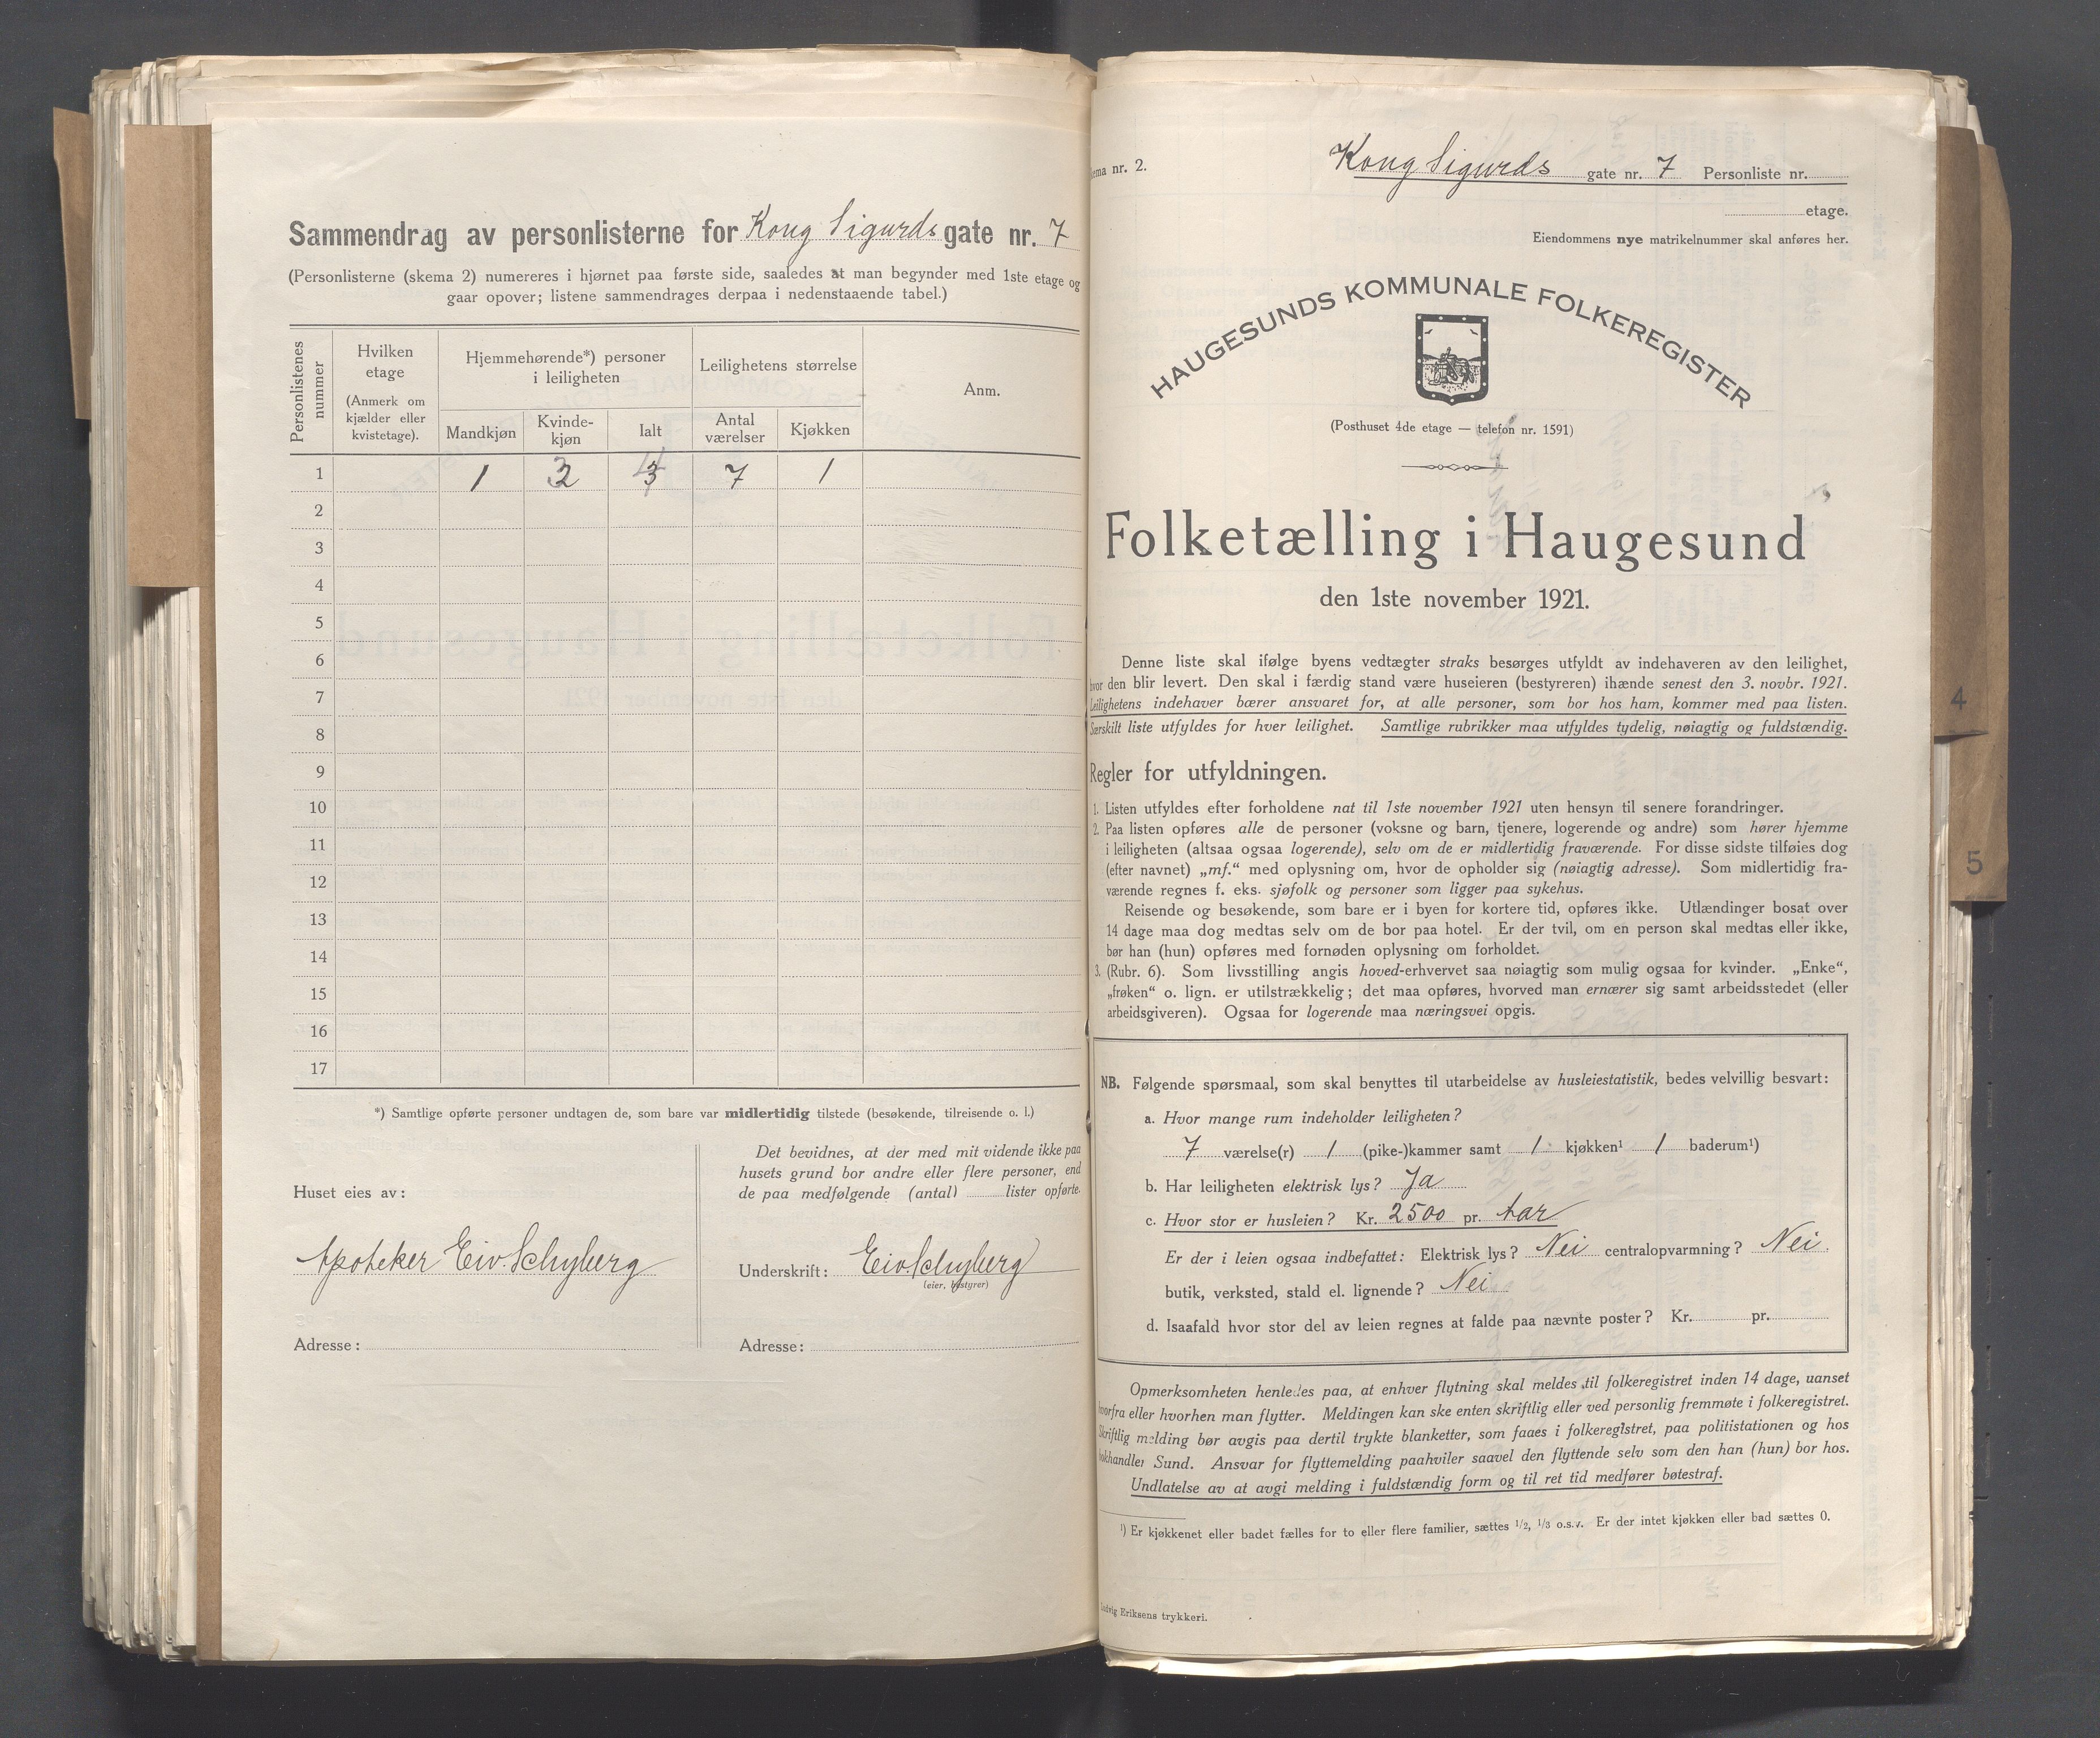 Sammendrag av personlisterne for Kong Sigurds gate nr. 7
(Personlisterne (skema 2) numereres i hjørnet paa første side, saaledes at man begynder med 1ste etage og
gaar opover; listene sammendrages derpaa i nedenstaaende tabel.)
Personlistenes nummer
Hvilken etage
(Anmerk om kjælder eller kvistetage).
Hjemmehørende*) personer i leiligheten
Leilighetens størrelse
Anm.
Mandkjøn
Kvindekjøn
Ialt
Antal værelser
Kjøkken
1 1 3 4 7 1
2
3
4
5
6
7
8
9
10
11
12
13
14
15
16
17
*) Samtlige opførte personer undtagen de, som bare var midlertidig tilstede (besøkende, tilreisende o. l.)
Huset eies av:
Apoteker Eiv. Schyberg
Adresse:
Det bevidnes, at der med mit vidende ikke paa
husets grund bor andre eller flere personer, end
de paa medfølgende (antal) lister opførte.
Underskrift: Eiv. Schyberg
(eier, bestyrer)
Adresse:
nr. 2.
Kong Sigurds gate nr. 7 Personliste nr.
etage.
Eiendommens nye matrikelnummer skal anføres her.
HAUGESUNDS KOMMUNALE FOLKEREGISTER
(Posthuset 4de etage — telefon nr. 1591)
Folketælling i Haugesund
den 1ste november 1921.
Denne liste skal ifølge byens vedtægter straks besørges utfyldt av indehaveren av den leilighet,
hvor den blir levert. Den skal i færdig stand være huseieren (bestyreren) ihænde senest den 3. novbr. 1921.
Leilighetens indehaver bærer ansvaret for, at alle personer, som bor hos ham, kommer med paa listen.
Særskilt liste utfyldes for hver leilighet. Samtlige rubrikker maa utfyldes tydelig, nøiagtig og fuldstændig.
Regler for utfyldningen.
1. Listen utfyldes efter forholdene nat til 1ste november 1921 uten hensyn til senere forandringer.
2. Paa listen opføres alle de personer (voksne og barn, tjenere, logerende og andre) som hører hjemme
i leiligheten (altsaa ogsaa logerende), selv om de er midlertidig fraværende. For disse sidste tilføies dog
(efter navnet) „mf.“ med oplysning om, hvor de opholder sig (nøiagtig adresse). Som midlertidig fra-
værende regnes f. eks. sjøfolk og personer som ligger paa sykehus.
Reisende og besøkende, som bare er i byen for kortere tid, opføres ikke. Utlændinger bosat over
14 dage maa dog medtas selv om de bor paa hotel. Er der tvil, om en person skal medtas eller ikke,
bør han (hun) opføres med fornøden oplysning om forholdet.
3. (Rubr. 6). Som livsstilling angis hoved-erhvervet saa nøiagtig som mulig ogsaa for kvinder. „Enke“,
„frøken“ o. lign. er utilstrækkelig; det maa opføres, hvorved man ernærer sig samt arbeidsstedet (eller
arbeidsgiveren). Ogsaa for logerende maa næringsvei opgis.
NB. Følgende spørsmaal, som skal benyttes til utarbeidelse av husleiestatistik, bedes velvillig besvart:
a. Hvor mange rum indeholder leiligheten?
7 værelse(r) 1 (pike-)kammer samt 1 kjøkken¹ 1 baderum¹)
b. Har leiligheten elektrisk lys? Ja
c. Hvor stor er husleien? Kr. 2500 pr. aar
Er der i leien ogsaa indbefattet: Elektrisk lys? Nei centralopvarmning? Nei.
butik, verksted, stald el. lignende? Nei
d. Isaafald hvor stor del av leien regnes at falde paa nævnte poster? Kr. pr.
Opmerksomheten henledes paa, at enhver flytning skal meldes til folkeregistret inden 14 dage, uanset
hvorfra eller hvorhen man flytter. Meldingen kan ske enten skriftlig eller ved personlig fremmøte i folkeregistret.
Skriftlig melding bør avgis paa dertil trykte blanketter, som faaes i folkeregistret, paa politistationen og hos
bokhandler Sund. Ansvar for flyttemelding paahviler saavel den flyttende selv som den han (hun) bor hos.
Undlatelse av at avgi melding i fuldstændig form og til ret tid medfører bøtestraf.
¹) Er kjøkkenet eller badet fælles for to eller flere familier, sættes 1/2, 1/3 o.s.v. Er der intet kjøkken eller bad sættes 0.
Ludvig Eriksens trykkeri.
4
5